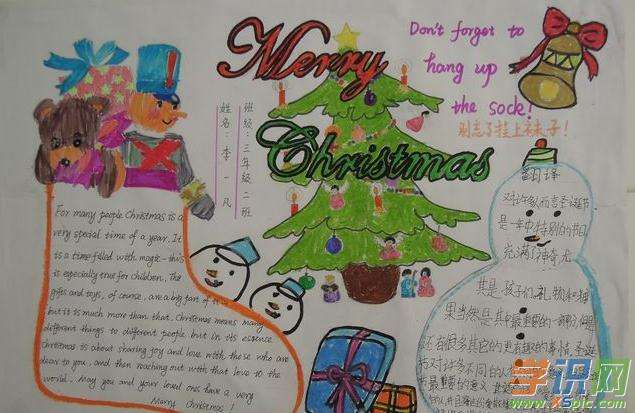 Merry
Christmas
Don't forget to
hang up
the sock!
别忘了挂上袜子!
班级:三年级二班
姓名:李一凡
For many people Christmas is a
very special time of a year. It
is a time filled with magic - this
is especially true for children. The
gifts and toys, of course, are a big part of it
but it is much more than that. Christmas means many
different things to different people but in its essence
Christmas is about sharing joy and love with those who are
dear to you, and then reaching out with that love to the
world. May you and your loved ones have a very
Merry Christmas!
翻译
对许多人而言圣诞节
是一年中特别的节日
充满了神奇尤
其是孩子们,礼物和
果当然是其最重要的一部分但
还有很多其它的更有趣的事情圣诞
节对许多不同的
最重要的意义
学识网
www.xspic.com